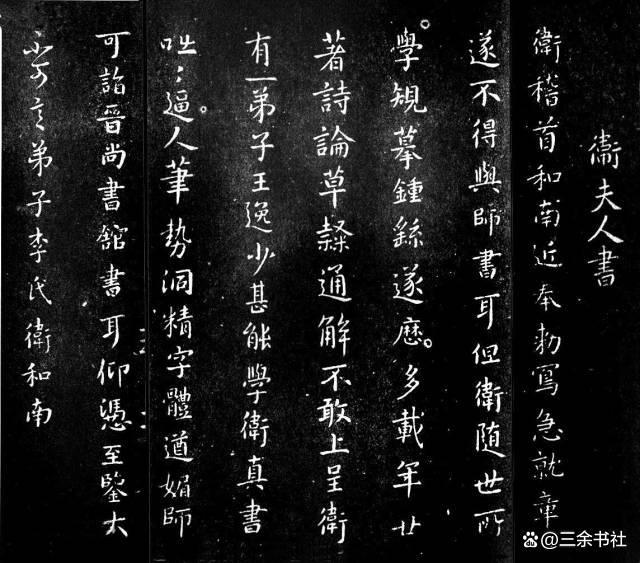 衛夫人書
衛稽首和南近奉勑寫急就章
遂不得與師書耳但衛隨世所
學規摹鍾繇遂歷多載年廿
著詩論草隸通解不敢上呈衛
有一弟子王逸少甚能學衛真書
咄〻逼人筆勢洞精字體遒媚師
可詣晉尚書舘書耳仰憑至鑒大
不可言弟子李氏衛和南
三余书社